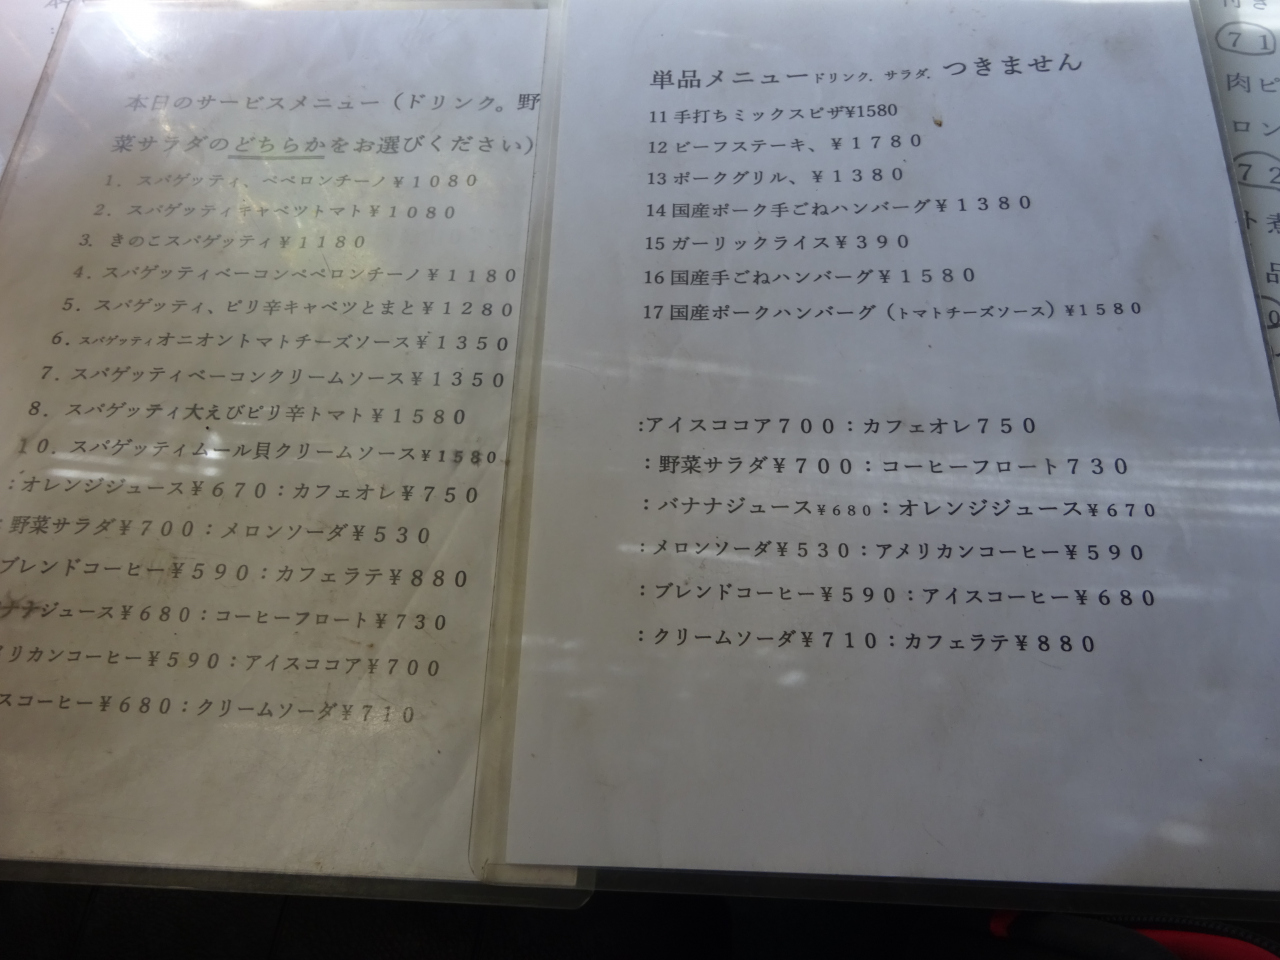 本日のサービスメニュー（ドリンク。野
菜サラダのどちらかをお選びください）
1．スパゲッティ、ペペロンチーノ￥1080
2．スパゲッティキャベツトマト￥1080
3．きのこスパゲッティ￥1180
4．スパゲッティベーコンペペロンチーノ￥1180
5．スパゲッティ、ピリ辛キャベツとまと￥1280
6．スパゲッティオニオントマトチーズソース￥1350
7．スパゲッティベーコンクリームソース￥1350
8．スパゲッティ大えびピリ辛トマト￥1580
10．スパゲッティムール貝クリームソース￥1580
：オレンジジュース￥670：カフェオレ￥750
：野菜サラダ￥700：メロンソーダ￥530
ブレンドコーヒー￥590：カフェラテ￥880
ナナジュース￥680：コーヒーフロート￥730
リカンコーヒー￥590：アイスココア￥700
スコーヒー￥680：クリームソーダ￥710
単品メニュードリンク．サラダ．つきません
11手打ちミックスピザ¥1580
12ビーフステーキ、￥1780
13ポークグリル、￥1380
14国産ポーク手ごねハンバーグ￥1380
15ガーリックライス￥390
16国産手ごねハンバーグ￥1580
17国産ポークハンバーグ（トマトチーズソース）¥1580
:アイスココア700：カフェオレ750
：野菜サラダ￥700：コーヒーフロート730
：バナナジュース￥680：オレンジジュース￥670
：メロンソーダ￥530：アメリカンコーヒー￥590
：ブレンドコーヒー￥590：アイスコーヒー￥680
：クリームソーダ￥710：カフェラテ￥880
付き
71
肉ピ
ロン
72
ト煮
品